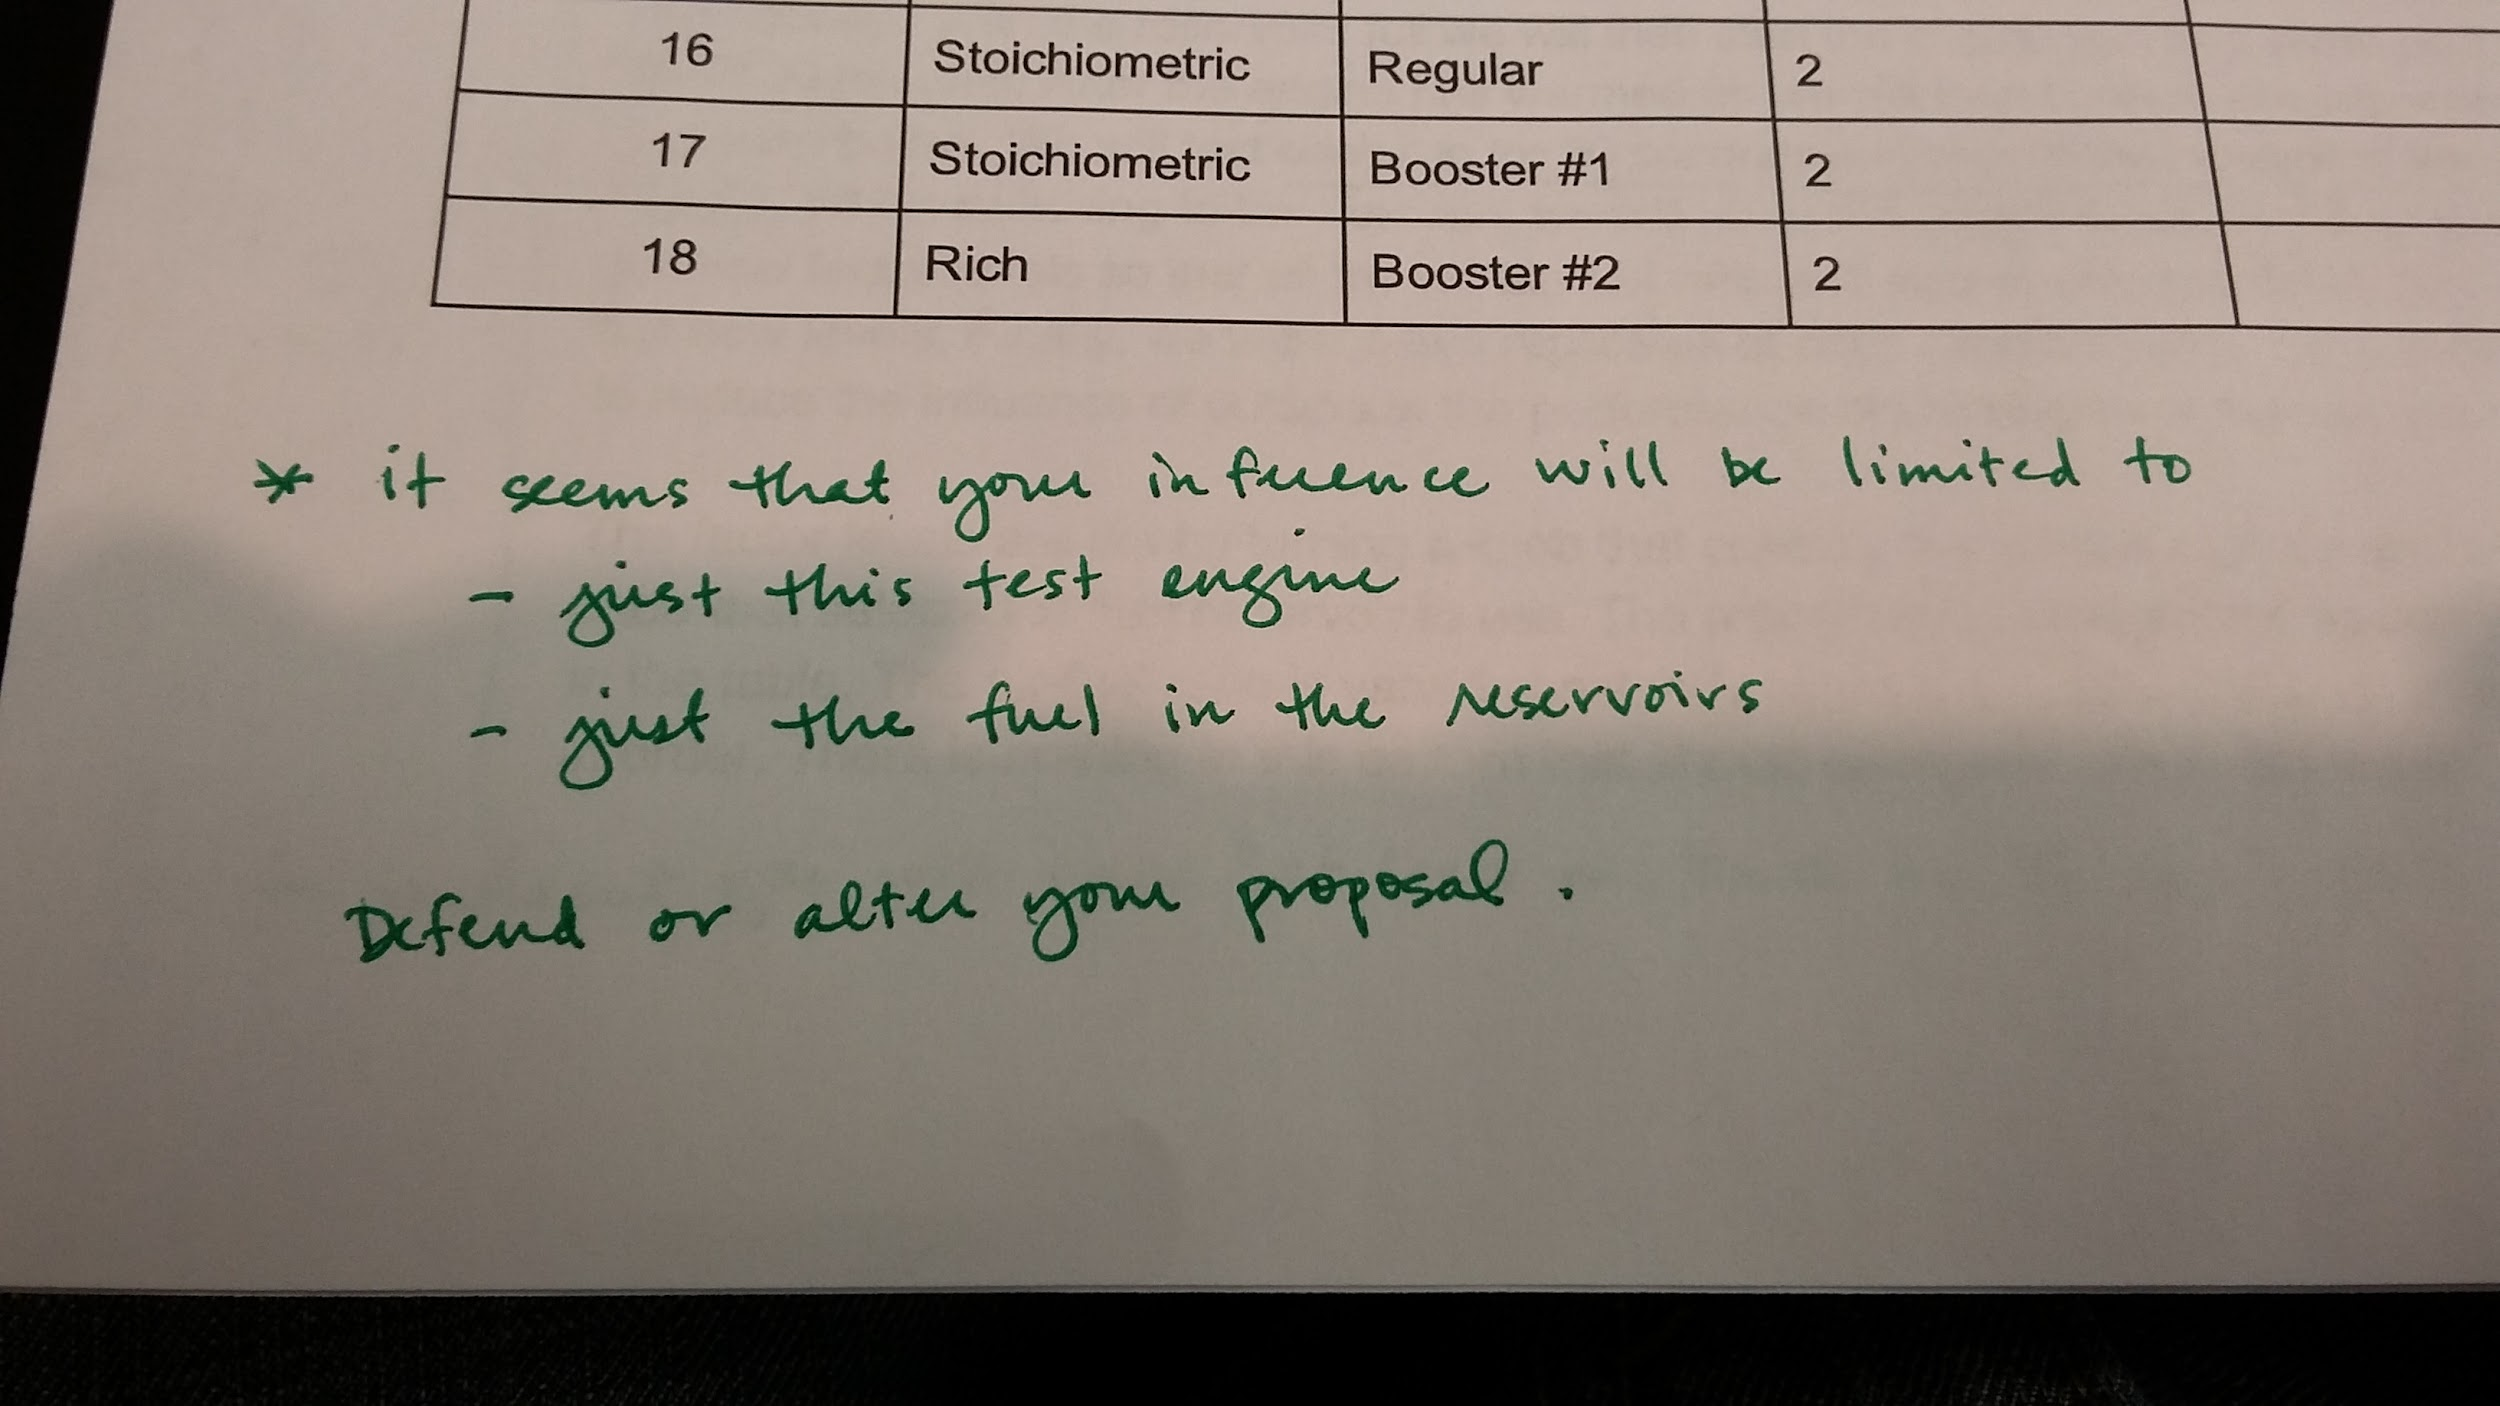 16 Stoichiometric Regular 2
17 Stoichiometric Booster #1 2
18 Rich Booster #2 2
* it seems that your inference will be limited to
- just this test engine
- just the fuel in the reservoirs
Defend or alter your proposal.